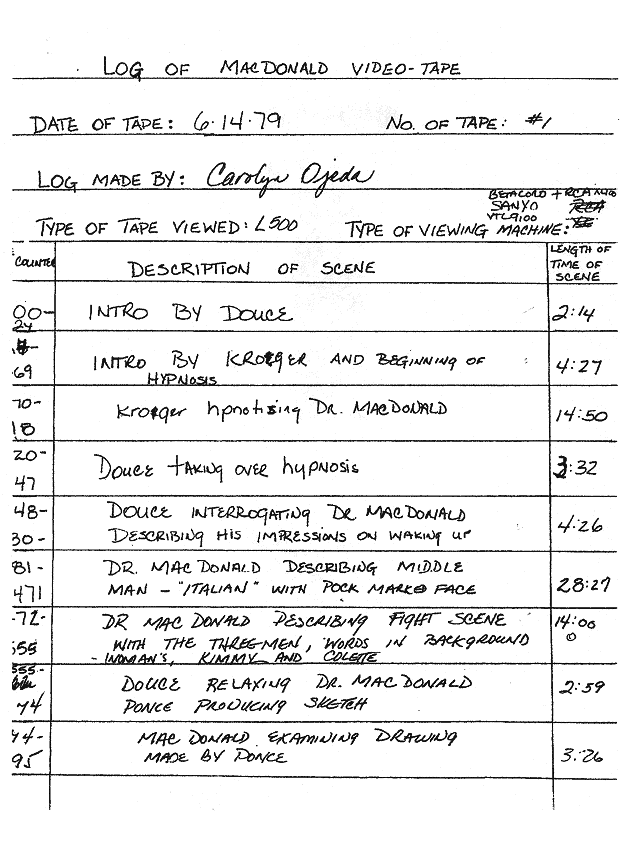 LOG OF MACDONALD VIDEO-TAPE
DATE OF TAPE: 6·14·79 NO. OF TAPE: #1
LOG MADE BY: Carolyn Ojeda
BETACORD + RCA
SANYO
VTC9100
TYPE OF TAPE VIEWED: L500 TYPE OF VIEWING MACHINE:
COUNTER DESCRIPTION OF SCENE LENGTH OF TIME OF SCENE
00- INTRO BY DOUCE 2:14
24
69 INTRO BY KROEGER AND BEGINNING OF 4:27
HYPNOSIS
70- Kroeger hpnotising DR. MACDONALD 14:50
18
20- DOUCE TAKING OVER HYPNOSIS 3:32
47
48- DOUCE INTERROGATING DR MACDONALD 4:26
30- DESCRIBING HIS IMPRESSIONS ON WAKING UP
81- DR. MAC DONALD DESCRIBING MIDDLE
471 MAN - "ITALIAN" WITH POCK MARKED FACE 28:27
-72- DR MAC DONALD DESCRIBING FIGHT SCENE 14:00
555 WITH THE THREE MEN, WORDS IN BACKGROUND 0
- WOMAN'S, KIMMY AND COLETTE
555- DOUCE RELAXING DR. MACDONALD 2:59
74 PONCE PRODUCING SKETCH
74- MAC DONALD EXAMINING DRAWING
95 MADE BY PONCE 3:26